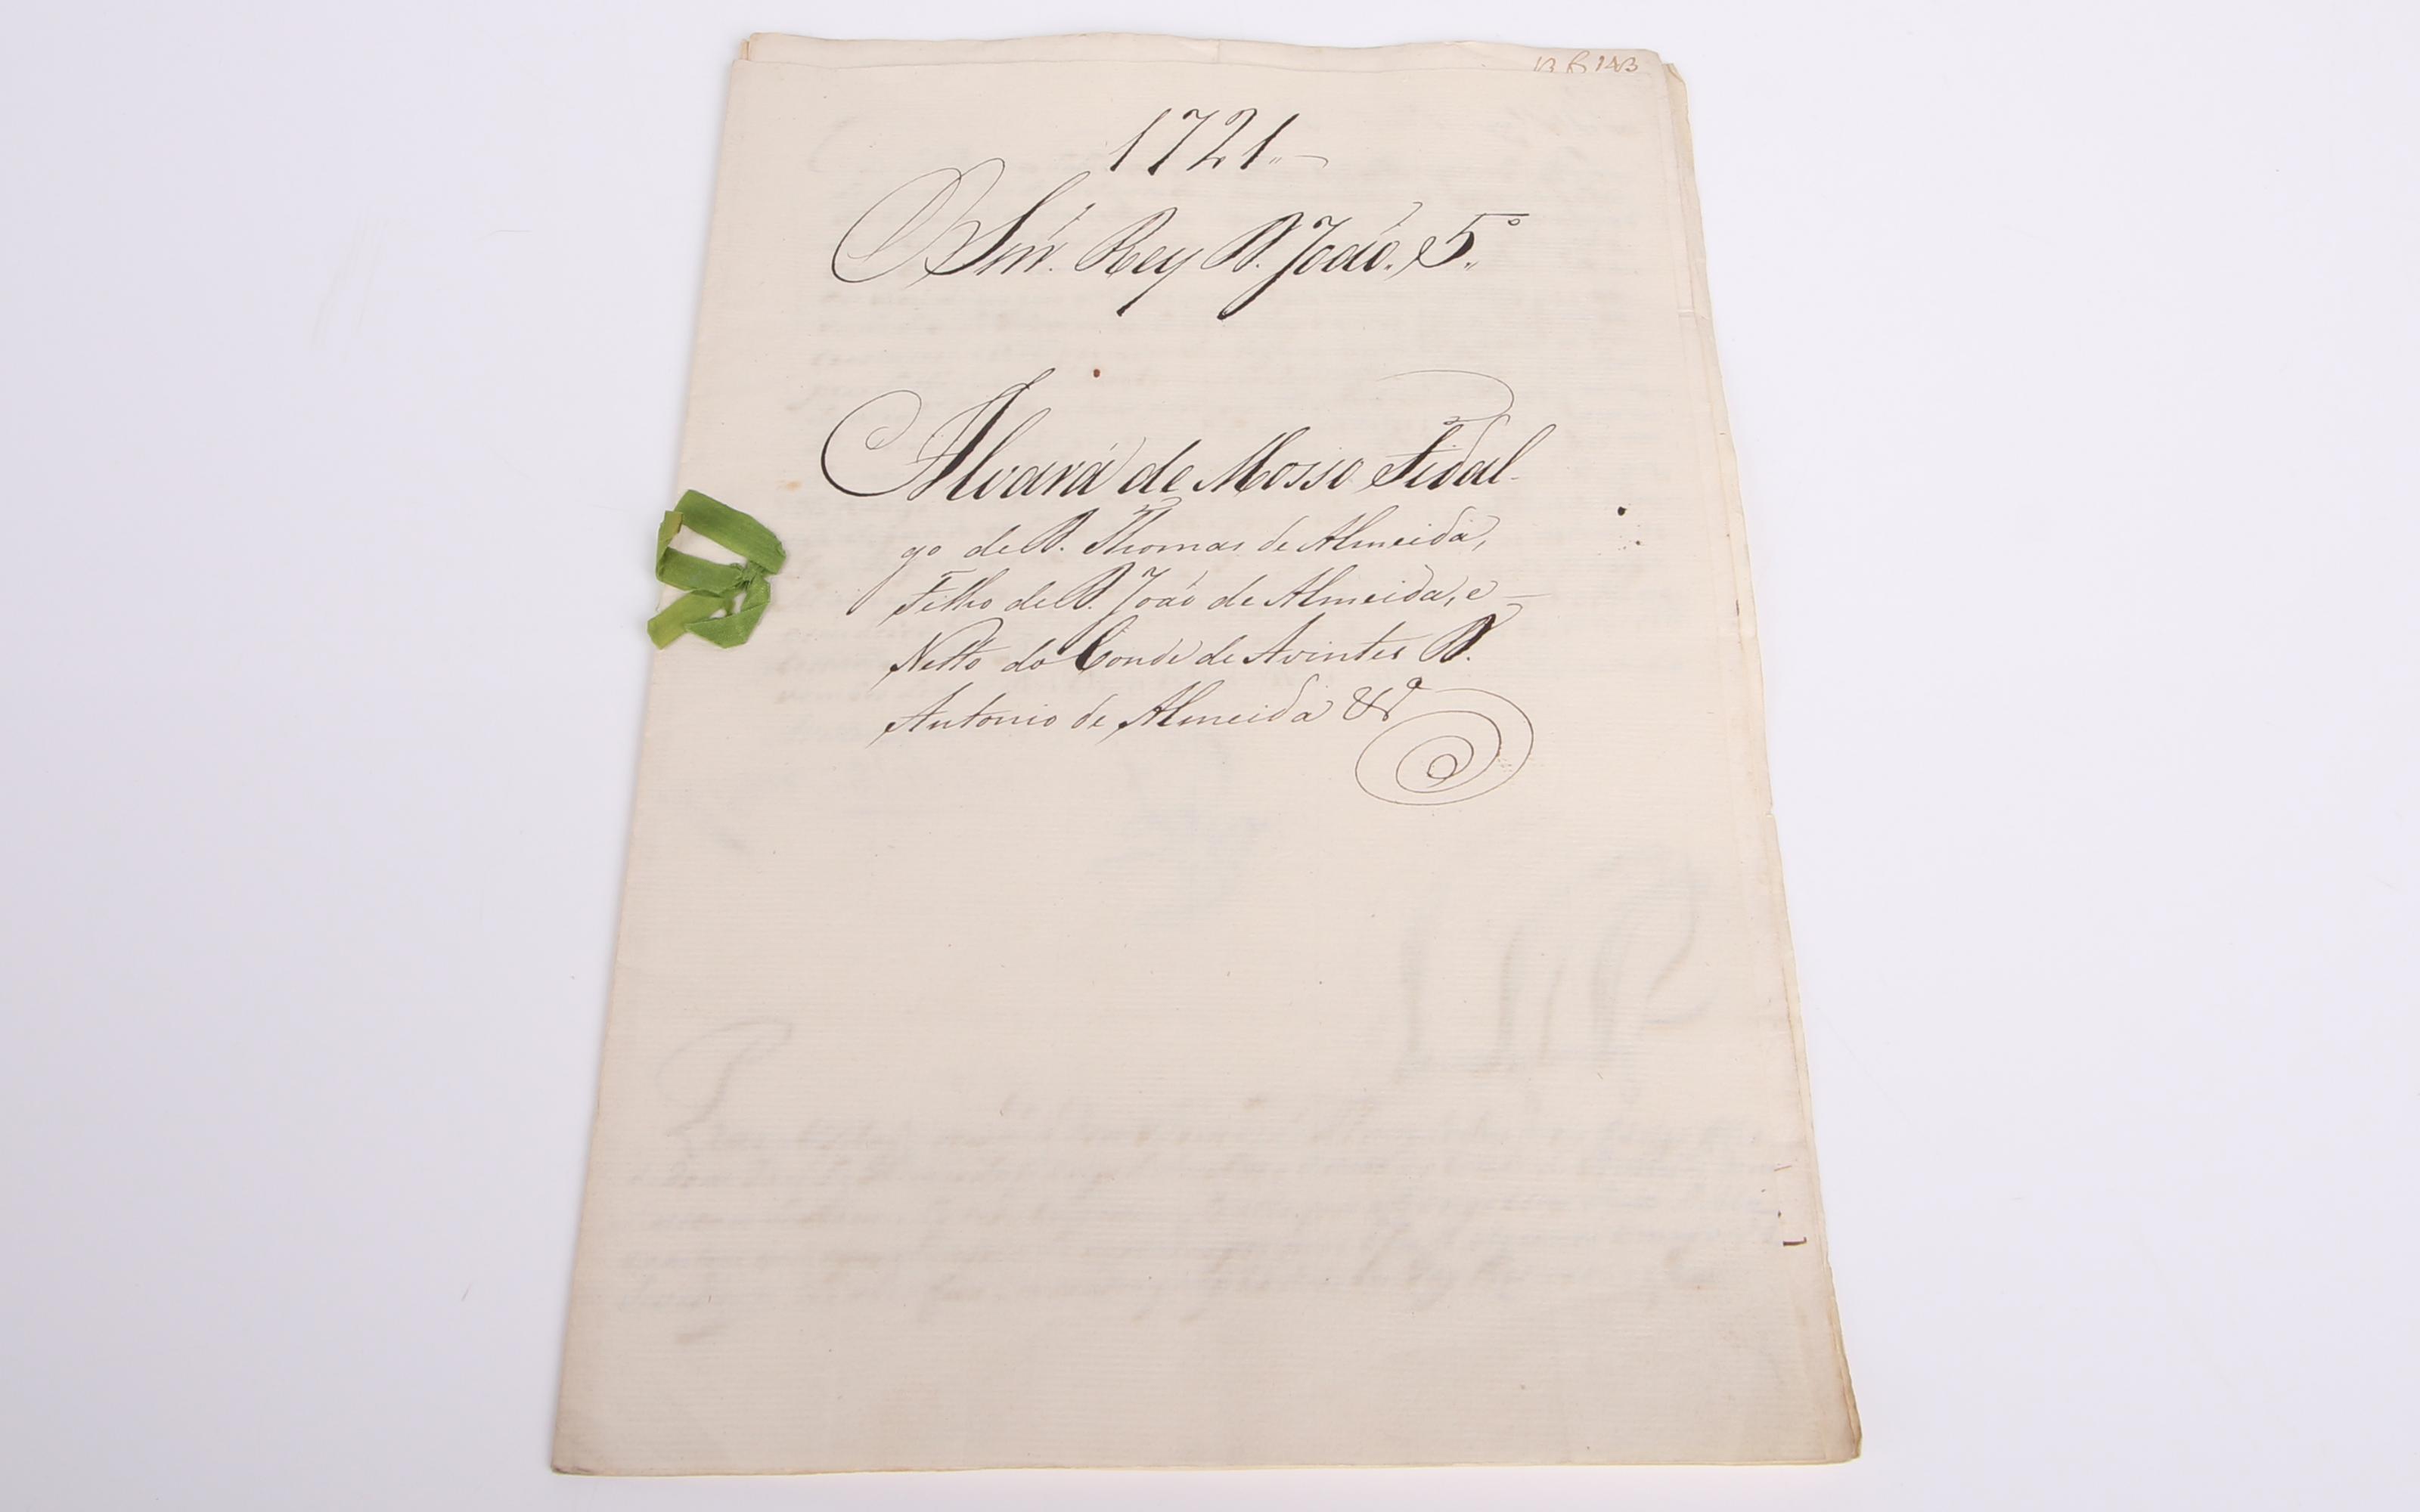 1721.
O Snr. Rey D. João. 5.º
Alvará de Mosso Fidal-
go de D. Thomas de Almeida,
Filho de D. João de Almeida, e
Netto do Conde de Avintes D.
Antonio de Almeida &ª